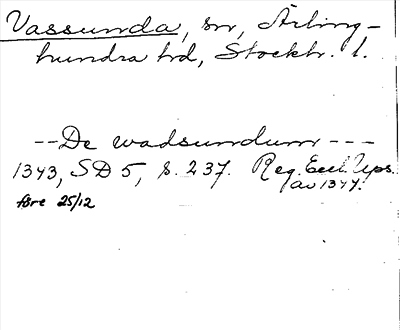 Vassunda, sn, Ärling-
hundra hd, Stockh. l.
--De wadsundum---
1343, SD 5, s. 237. Reg. Eccl. Ups.
av 1344.
före 25/12